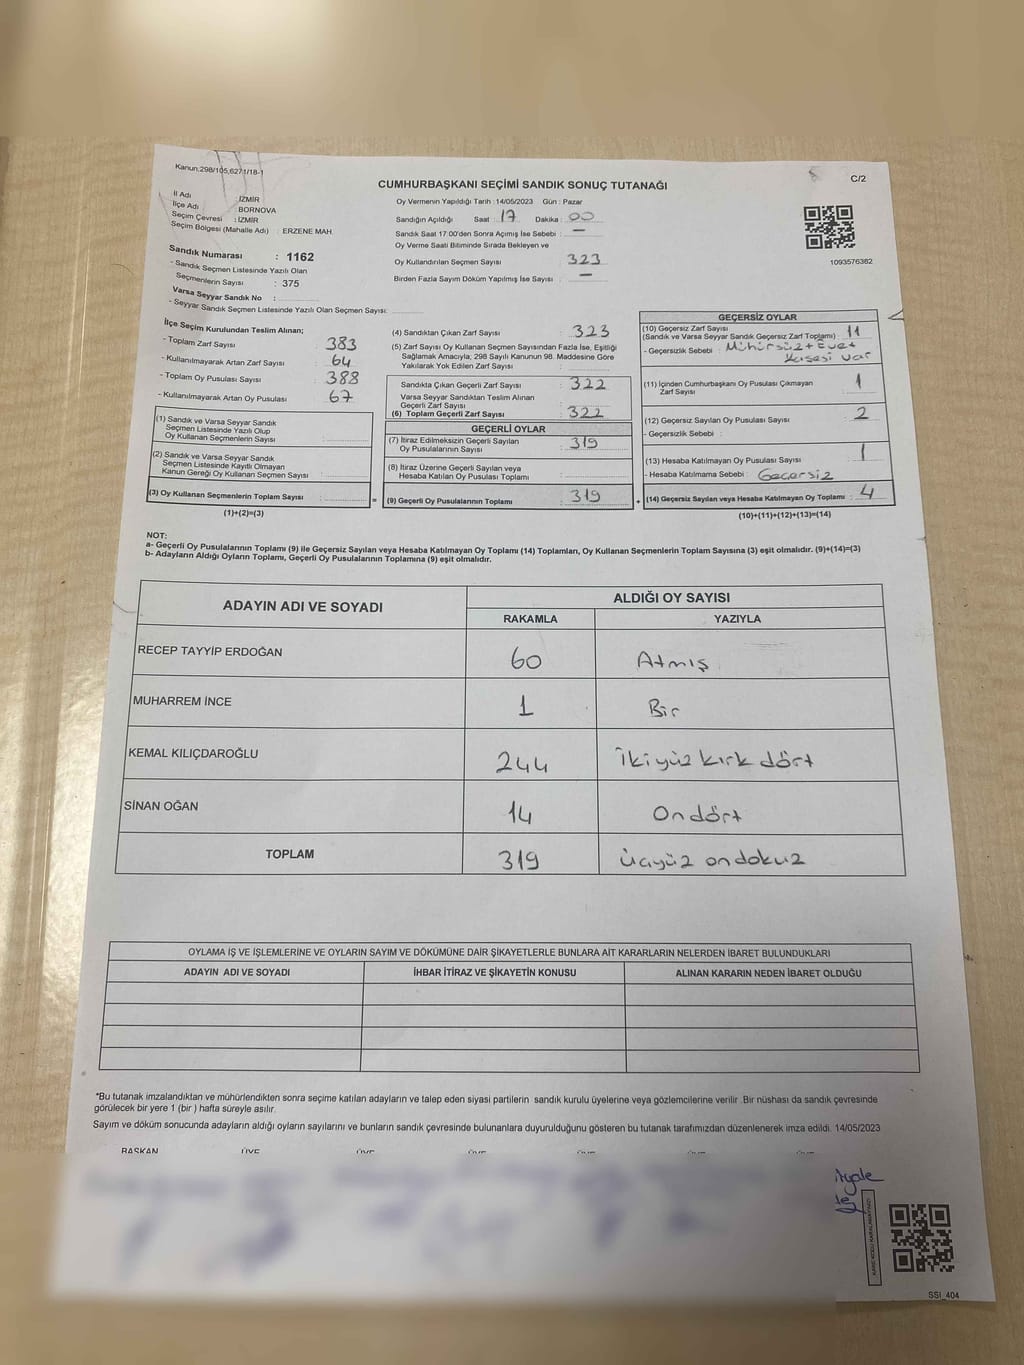 Kanun:298/105,627.1/18-1
C/2
CUMHURBAŞKANI SEÇİMİ SANDIK SONUÇ TUTANAĞI
İl Adı : İZMİR
İlçe Adı : BORNOVA
Seçim Çevresi : İZMİR
Seçim Bölgesi (Mahalle Adı) : ERZENE MAH.
Sandık Numarası : 1162
- Sandık Seçmen Listesinde Yazılı Olan
Seçmenlerin Sayısı : 375
Varsa Seyyar Sandık No :
- Seyyar Sandık Seçmen Listesinde Yazılı Olan Seçmen Sayısı:
Oy Vermenin Yapıldığı Tarih :14/05/2023 Gün : Pazar
Sandığın Açıldığı Saat : 17 Dakika : 00
Sandık Saat 17:00'den Sonra Açımış İse Sebebi : —
Oy Verme Saati Bitiminde Sırada Bekleyen ve
Oy Kullandırılan Seçmen Sayısı : 323
Birden Fazla Sayım Döküm Yapılmış İse Sayısı : —
1093576382
İlçe Seçim Kurulundan Teslim Alınan;
- Toplam Zarf Sayısı : 383
- Kullanılmayarak Artan Zarf Sayısı : 64
- Toplam Oy Pusulası Sayısı : 388
- Kullanılmayarak Artan Oy Pusulası : 67
(1) Sandık ve Varsa Seyyar Sandık
Seçmen Listesinde Yazılı Olup
Oy Kullanan Seçmenlerin Sayısı :
(2) Varsa Seyyar Sandık ve Sandık
Seçmen Listesinde Kayıtlı Olmayan
Kanun Gereği Oy Kullanan Seçmen Sayısı :
(3) Oy Kullanan Seçmenlerin Toplam Sayısı :
(1)+(2)=(3)
(4) Sandıktan Çıkan Zarf Sayısı : 323
(5) Zarf Sayısı Oy Kullanan Seçmen Sayısından Fazla İse, Eşitliği
Sağlamak Amacıyla; 298 Sayılı Kanunun 98. Maddesine Göre
Yakılarak Yok Edilen Zarf Sayısı :
Sandıkta Çıkan Geçerli Zarf Sayısı : 322
Varsa Seyyar Sandıktan Teslim Alınan
Geçerli Zarf Sayısı :
(6) Toplam Geçerli Zarf Sayısı : 322
GEÇERLİ OYLAR
(7) İtiraz Edilmeksizin Geçerli Sayılan
Oy Pusulalarının Sayısı : 319
(8) İtiraz Üzerine Geçerli Sayılan veya
Hesaba Katılan Oy Pusulaları Toplamı :
= (9) Geçerli Oy Pusulalarının Toplamı : 319
GEÇERSİZ OYLAR
(10) Geçersiz Zarf Sayısı
(Sandık ve Varsa Seyyar Sandık Geçersiz Zarf Toplamı) : 11
- Geçersizlik Sebebi : Mühürsüz + Evet
kaşesi var
(11) İçinden Cumhurbaşkanı Oy Pusulası Çıkmayan
Zarf Sayısı : 1
(12) Geçersiz Sayılan Oy Pusulası Sayısı : 2
- Geçersizlik Sebebi :
(13) Hesaba Katılmayan Oy Pusulası Sayısı : 1
- Hesaba Katılmama Sebebi : Geçersiz
+ (14) Geçersiz Sayılan veya Hesaba Katılmayan Oy Toplamı : 4
(10)+(11)+(12)+(13)=(14)
NOT:
a- Geçerli Oy Pusulalarının Toplamı (9) ile Geçersiz Sayılan veya Hesaba Katılmayan Oy Toplamı (14) Toplamları, Oy Kullanan Seçmenlerin Toplam Sayısına (3) eşit olmalıdır. (9)+(14)=(3)
b- Adayların Aldığı Oyların Toplamı, Geçerli Oy Pusulalarının Toplamına (9) eşit olmalıdır.
ADAYIN ADI VE SOYADI ALDIĞI OY SAYISI
RAKAMLA YAZIYLA
RECEP TAYYİP ERDOĞAN 60 Atmış
MUHARREM İNCE 1 Bir
KEMAL KILIÇDAROĞLU 244 İkiyüz kırk dört
SİNAN OĞAN 14 On dört
TOPLAM 319 Üçyüz ondokuz
OYLAMA İŞ VE İŞLEMLERİNE VE OYLARIN SAYIM VE DÖKÜMÜNE DAİR ŞİKAYETLERLE BUNLARA AİT KARARLARIN NELERDEN İBARET BULUNDUKLARI
ADAYIN ADI VE SOYADI İHBAR İTİRAZ VE ŞİKAYETİN KONUSU ALINAN KARARIN NEDEN İBARET OLDUĞU
*Bu tutanak imzalandıktan ve mühürlendikten sonra seçime katılan adayların ve talep eden siyasi partilerin sandık kurulu üyelerine veya gözlemcilerine verilir .Bir nüshası da sandık çevresinde
görülecek bir yere 1 (bir ) hafta süreyle asılır.
Sayım ve döküm sonucunda adayların aldığı oyların sayılarını ve bunların sandık çevresinde bulunanlara duyurulduğunu gösteren bu tutanak tarafımızdan düzenlenerek imza edildi. 14/05/2023
BAŞKAN ÜYE ÜYE ÜYE ÜYE ÜYE ÜYE
SSI_404